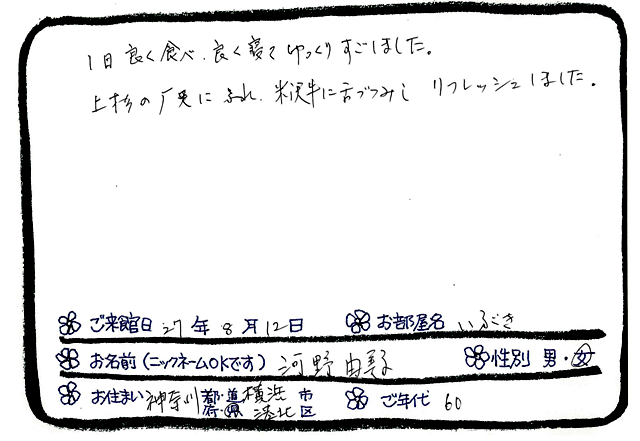 1日良く食べ、良く寝てゆっくりすごしました。
上杉の歴史にふれ、米沢牛に舌づつみし リフレッシュしました。
ご来館日 27年 8月12日 お部屋名 いぶき
お名前(ニックネームOKです) 河野由美子 性別 男・女
お住まい 神奈川 都・道・府・県 横浜市 港北区 ご年代 60